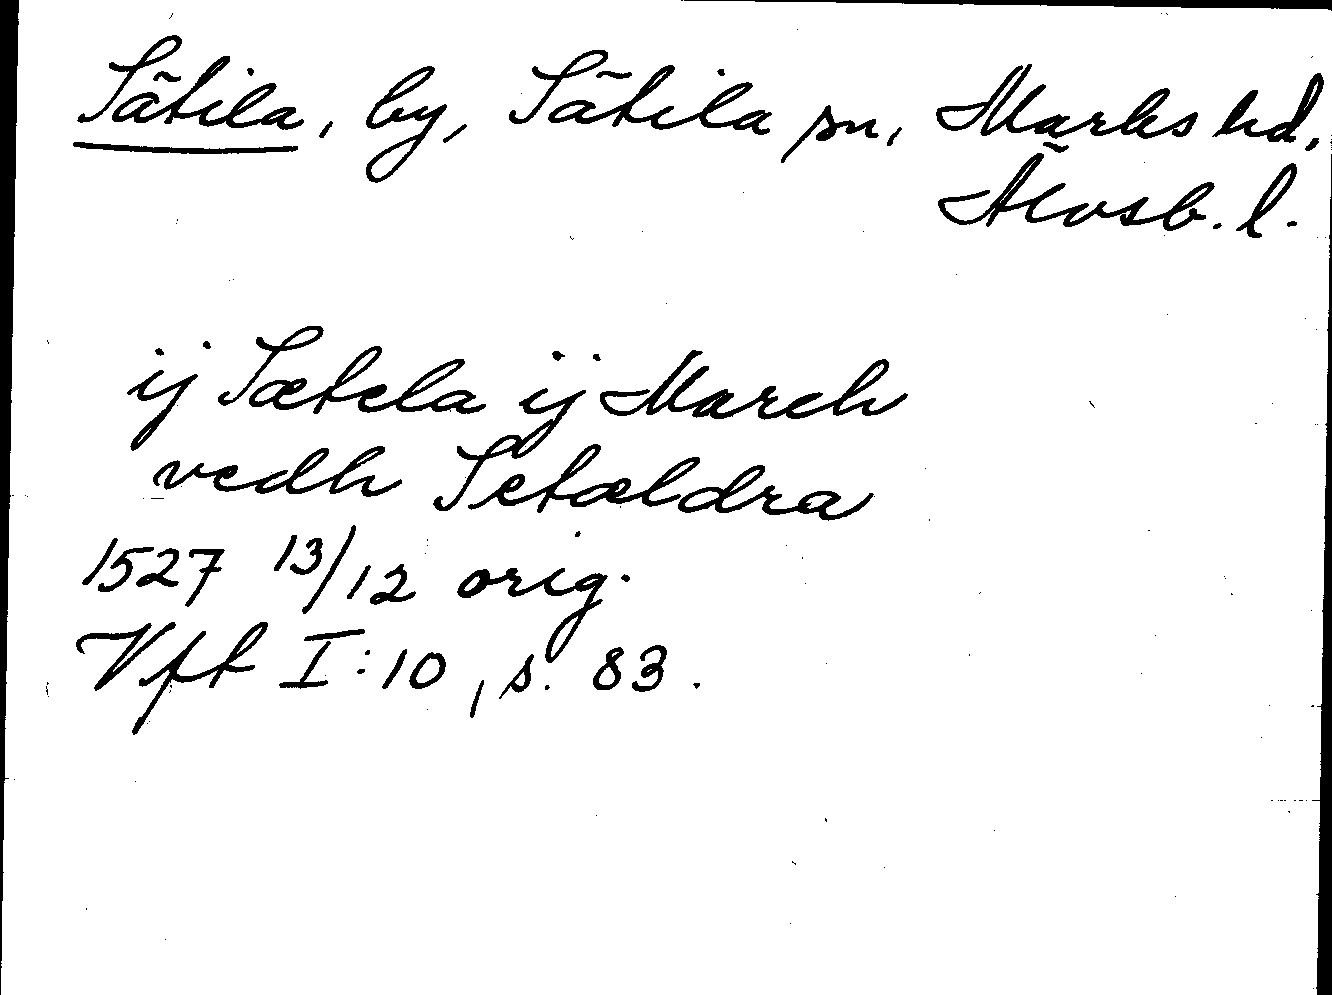 Sätila, by, Sätila sn, Marks hd,
Älvsb. l.
ij Sætela ij March
vedh Setældra
1527 13/12 orig.
Vft I:10, s. 83.